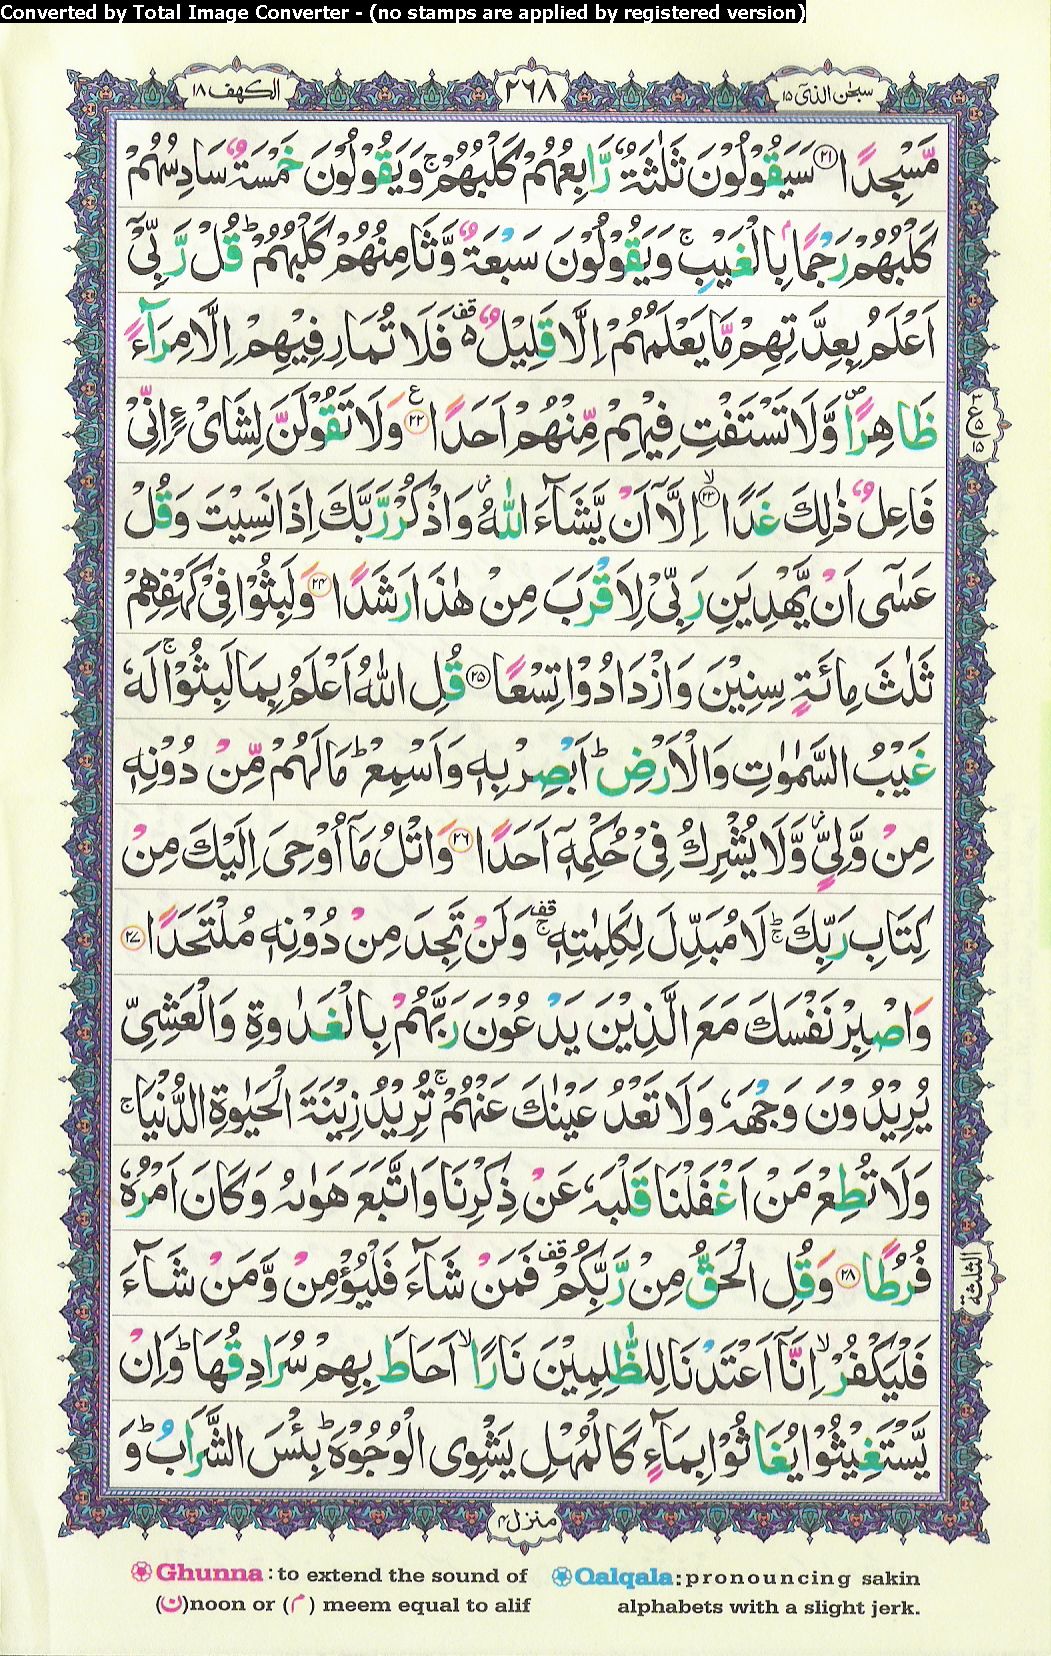 Converted by Total Image Converter - (no stamps are applied by registered version)
سبحٰن الذی ١٥
٢٦٨
الکهف ١٨
مَّسْجِدًا ٢١ سَیَقُوْلُوْنَ ثَلٰثَةٌ رَّابِعُهُمْ كَلْبُهُمْ ۚ وَیَقُوْلُوْنَ خَمْسَةٌ سَادِسُهُمْ
كَلْبُهُمْ رَجْمًۢا بِالْغَیْبِ ۚ وَیَقُوْلُوْنَ سَبْعَةٌ وَّثَامِنُهُمْ كَلْبُهُمْ ؕ قُلْ رَّبِّیْۤ
اَعْلَمُ بِعِدَّتِهِمْ مَّا یَعْلَمُهُمْ اِلَّا قَلِیْلٌ ۵ قف فَلَا تُمَارِ فِیْهِمْ اِلَّا مِرَآءً
ظَاهِرًا ۪ وَّلَا تَسْتَفْتِ فِیْهِمْ مِّنْهُمْ اَحَدًا ٢٢ ع وَلَا تَقُوْلَنَّ لِشَایْءٍ اِنِّیْ
٣ ع ٥ ١٥
فَاعِلٌ ذٰلِكَ غَدًا ٢٣ ۙ اِلَّاۤ اَنْ یَّشَآءَ اللّٰهُ ؗ وَاذْكُرْ رَّبَّكَ اِذَا نَسِیْتَ وَقُلْ
عَسٰۤی اَنْ یَّهْدِیَنِ رَبِّیْ لِاَقْرَبَ مِنْ هٰذَا رَشَدًا ٢٤ وَلَبِثُوْا فِیْ كَهْفِهِمْ
ثَلٰثَ مِائَةٍ سِنِیْنَ وَازْدَادُوْا تِسْعًا ٢٥ قُلِ اللّٰهُ اَعْلَمُ بِمَا لَبِثُوْا ۚ لَهٗ
غَیْبُ السَّمٰوٰتِ وَالْاَرْضِ ؕ اَبْصِرْ بِهٖ وَاَسْمِعْ ؕ مَا لَهُمْ مِّنْ دُوْنِهٖ
مِنْ وَّلِیٍّ ؗ وَّلَا یُشْرِكُ فِیْ حُكْمِهٖۤ اَحَدًا ٢٦ وَاتْلُ مَاۤ اُوْحِیَ اِلَیْكَ مِنْ
كِتَابِ رَبِّكَ ؕۚ لَا مُبَدِّلَ لِكَلِمٰتِهٖ ۚ قف وَلَنْ تَجِدَ مِنْ دُوْنِهٖ مُلْتَحَدًا ٢٧
وَاصْبِرْ نَفْسَكَ مَعَ الَّذِیْنَ یَدْعُوْنَ رَبَّهُمْ بِالْغَدٰوةِ وَالْعَشِیِّ
یُرِیْدُوْنَ وَجْهَهٗ وَلَا تَعْدُ عَیْنٰكَ عَنْهُمْ ۚ تُرِیْدُ زِیْنَةَ الْحَیٰوةِ الدُّنْیَا ۚ
وَلَا تُطِعْ مَنْ اَغْفَلْنَا قَلْبَهٗ عَنْ ذِكْرِنَا وَاتَّبَعَ هَوٰىهُ وَكَانَ اَمْرُهٗ
فُرُطًا ٢٨ وَقُلِ الْحَقُّ مِنْ رَّبِّكُمْ قف فَمَنْ شَآءَ فَلْیُؤْمِنْ وَّمَنْ شَآءَ
الثلثة
فَلْیَكْفُرْ ۙ اِنَّاۤ اَعْتَدْنَا لِلظّٰلِمِیْنَ نَارًا ۙ اَحَاطَ بِهِمْ سُرَادِقُهَا ؕ وَاِنْ
یَّسْتَغِیْثُوْا یُغَاثُوْا بِمَآءٍ كَالْمُهْلِ یَشْوِی الْوُجُوْهَ ؕ بِئْسَ الشَّرَابُ ؕ وَ
منزل ٤
Ghunna : to extend the sound of
(ن)noon or (م) meem equal to alif
Qalqala: pronouncing sakin
alphabets with a slight jerk.